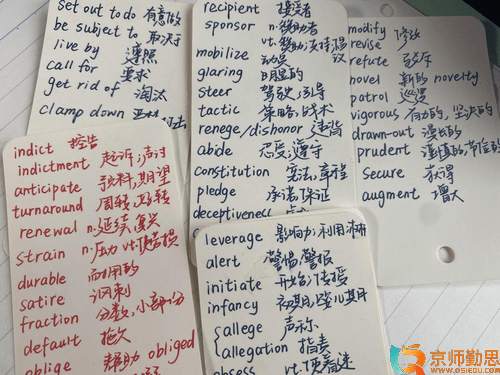 set out to do 有意做
be subject to 取决于
live by 遵照
call for 要求
get rid of 淘汰
clamp down
recipient 接受者
sponsor n.资助者
vt.资助;支持;倡议
mobilize 动员
glaring 明显的
steer 驾驶,引导
tactic 策略,战术
renege/dishonor 违背
abide 忍受,遵守
constitution 宪法,章程
pledge 承诺,保证
deceptiveness
modify
revise 修改
refute 驳斥
novel 新的 novelty
patrol 巡逻
vigorous 有力的,坚决的
drawn-out 漫长的
prudent 谨慎的,节俭的
secure 获得
augment 增大
indict 控告
indictment 起诉,声讨
anticipate 预料,期望
turnaround 周转,好转
renewal n.延续,复兴
strain n.压力 vt.使劳损
durable 耐用的
satire 讽刺
fraction 分数,小部分
default 拖欠
oblige 帮助 obliged
leverage 影响力;利用
alert 警惕,警报
initiate 开始;传授
infancy 初期,婴儿期
allege 声称
allegation 指责
obsess vt.使着迷
京师勤思
QSIEDU.COM